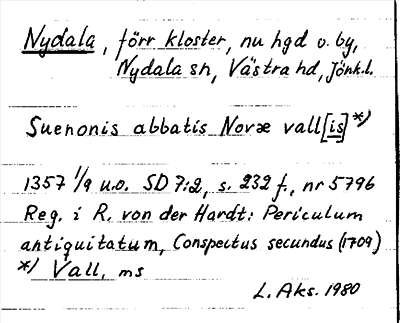 Nydala, förr kloster, nu hgd o. by,
Nydala sn, Västra hd, Jönk.l.
Suenonis abbatis Novæ vall[is] *)
1357 1/9 u.o. SD 7:2, s. 232 f., nr 5796
Reg. i R. von der Hardt: Periculum
antiquitatum, Conspectus secundus (1709)
*) Vall, ms
L. Aks. 1980